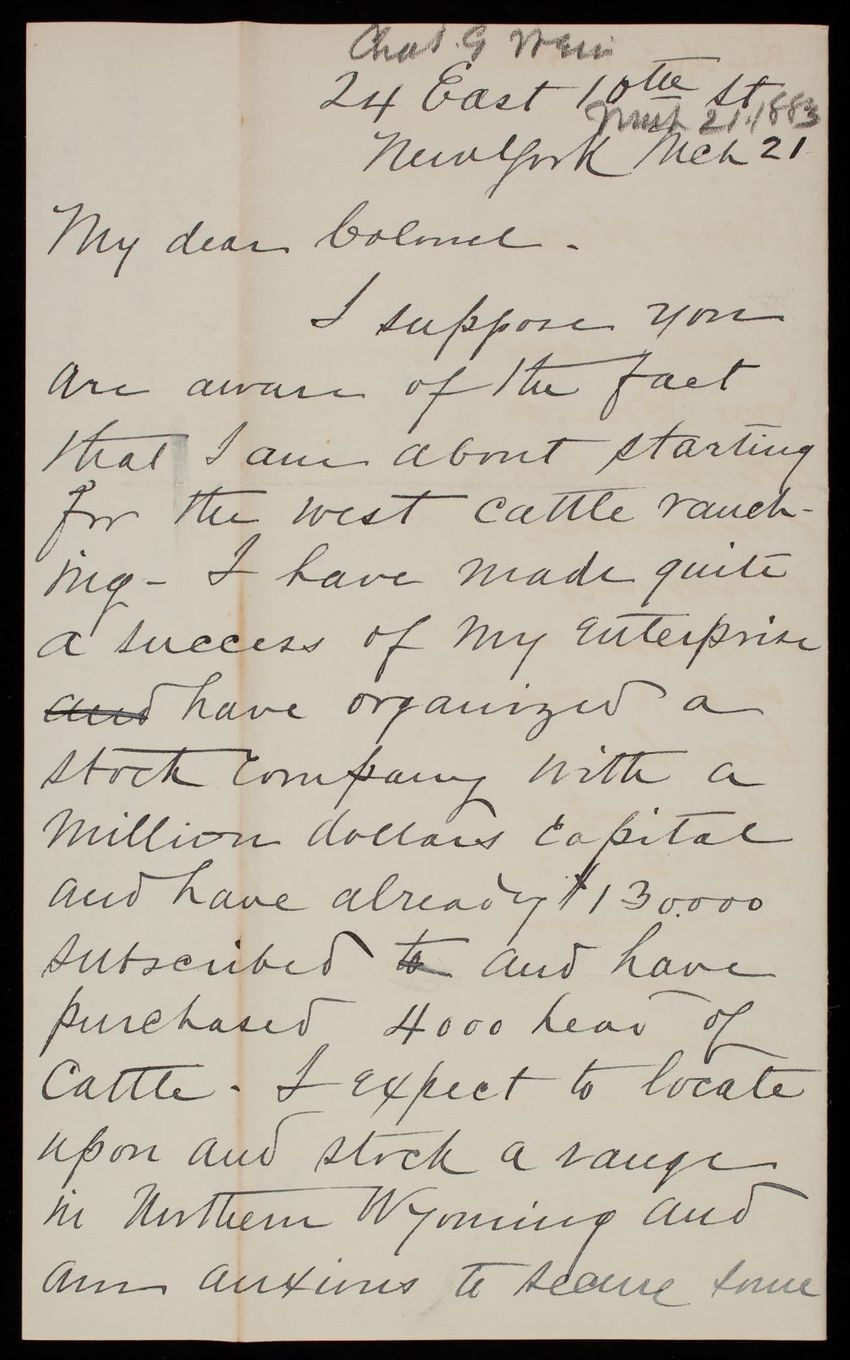 Chas. G
24 East 10th St
March 21. 1883
New York Mch 21
My dear Colonel.
I suppose you
are aware of the fact
that I am about starting
for the west cattle ranch-
ing - I have made quite
a success of my enterprise
and have organized a
stock company with a
million dollars capital
and have already $130.000
subscribed to and have
purchased 4000 head of
Cattle. I expect to locate
upon and stock a range
in Northern Wyoming and
am anxious to secure some